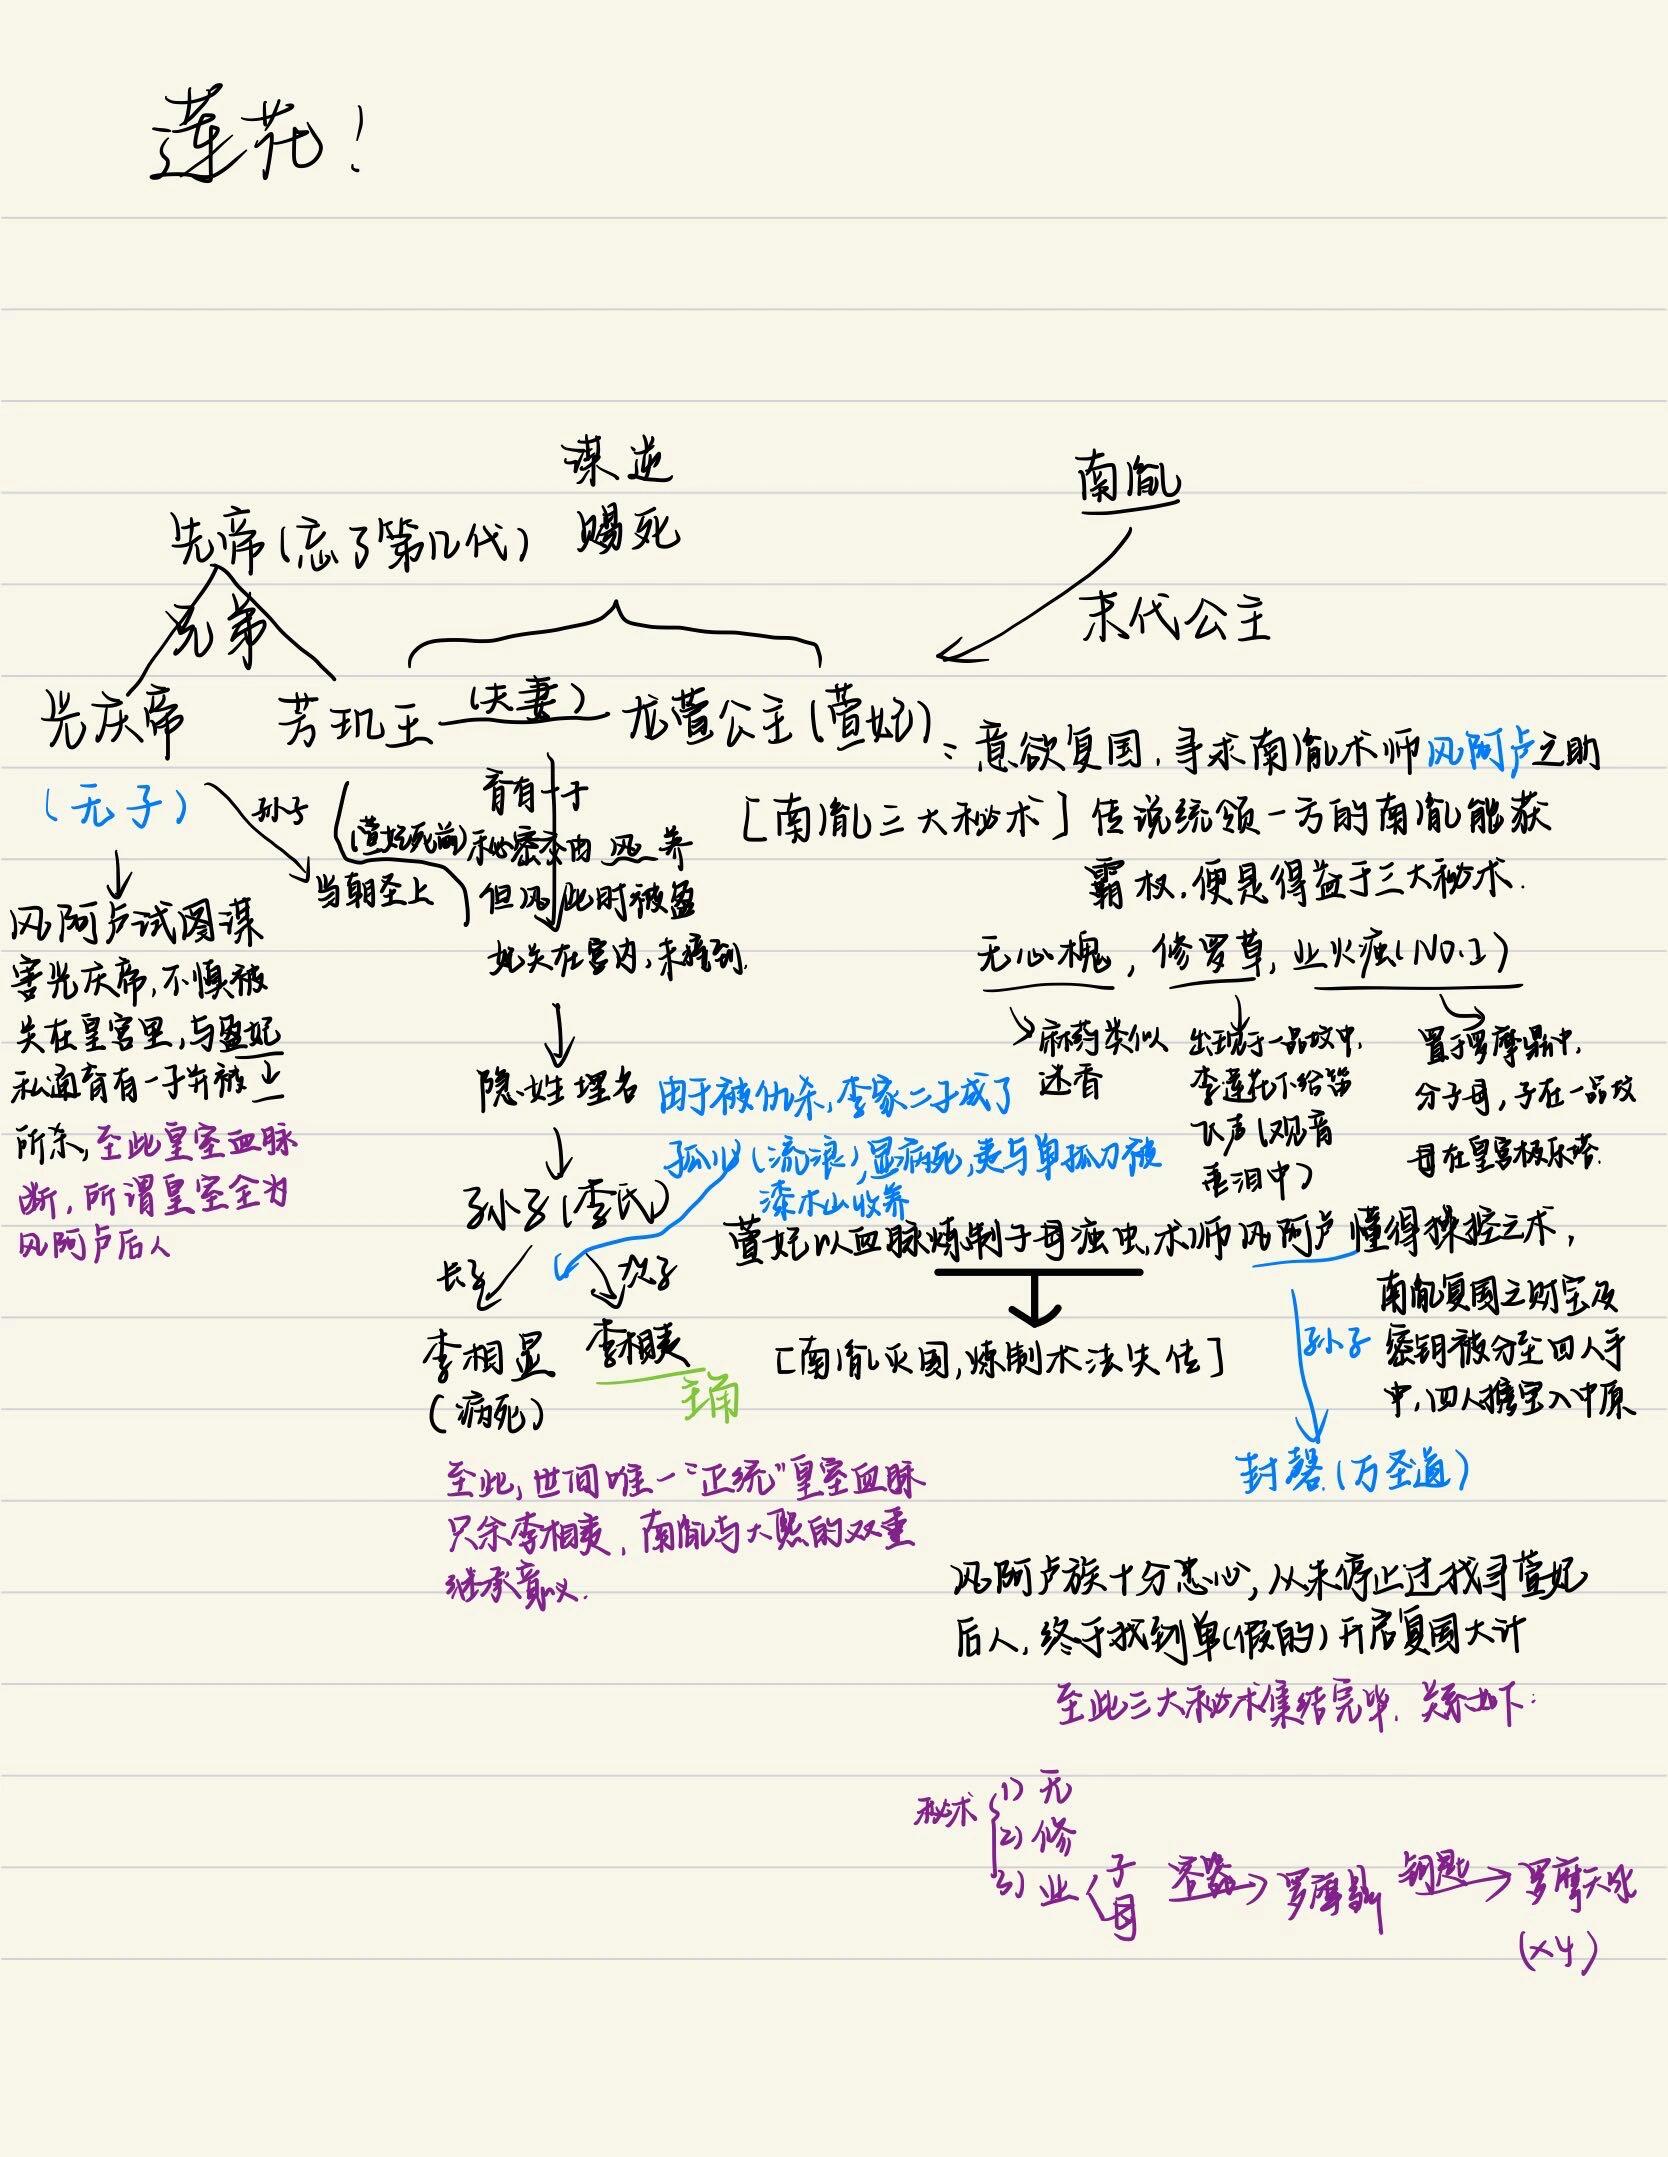 莲花！
谋逆
赐死
南胤
先帝（忘了第几代）
兄弟
末代公主
光庆帝
芳玑王
（夫妻）
龙萱公主（萱妃）
：意欲复国，寻求南胤术师风阿卢之助
（无子）
孙子
当朝圣上
育有一子
（萱妃死前）秘密交由 风 养
但风此时被盈
妃关在宫内，未接到.
[南胤三大秘术] 传说统领一方的南胤能获
霸权，便是得益于三大秘术.
风阿卢试图谋
害光庆帝，不慎被
关在皇宫里，与盈妃
私通育有一子并被
所杀，至此皇室血脉
断，所谓皇室全为
风阿卢后人
无心槐，修罗草，业火痋（NO.1）
麻药类似
迷香
出现于一品坟中，
李莲花下给笛
飞声（观音
垂泪中）
置于罗摩鼎中，
分子母，子在一品坟
母在皇宫极乐塔.
隐姓埋名
由于被仇杀，李家二子成了
孤儿（流浪），显病死，夷与单孤刀被
漆木山收养
孙子（李氏）
长子
次子
李相显
（病死）
李相夷
主角
萱妃以血脉炼制子母痋虫，术师风阿卢懂得操控之术，
[南胤灭国，炼制术法失传]
南胤复国之财宝及
密钥被分至四人手
中，四人携宝入中原
孙子
封磬（万圣道）
至此，世间唯一“正统”皇室血脉
只余李相夷，南胤与大熙的双重
继承意义.
风阿卢族十分忠心，从未停止过找寻萱妃
后人，终于找到单（假的）开启复国大计
至此三大秘术集结完毕，关系如下：
秘术
1）无
2）修
3）业
子
母
容器
罗摩鼎
钥匙
罗摩天冰
（×4）